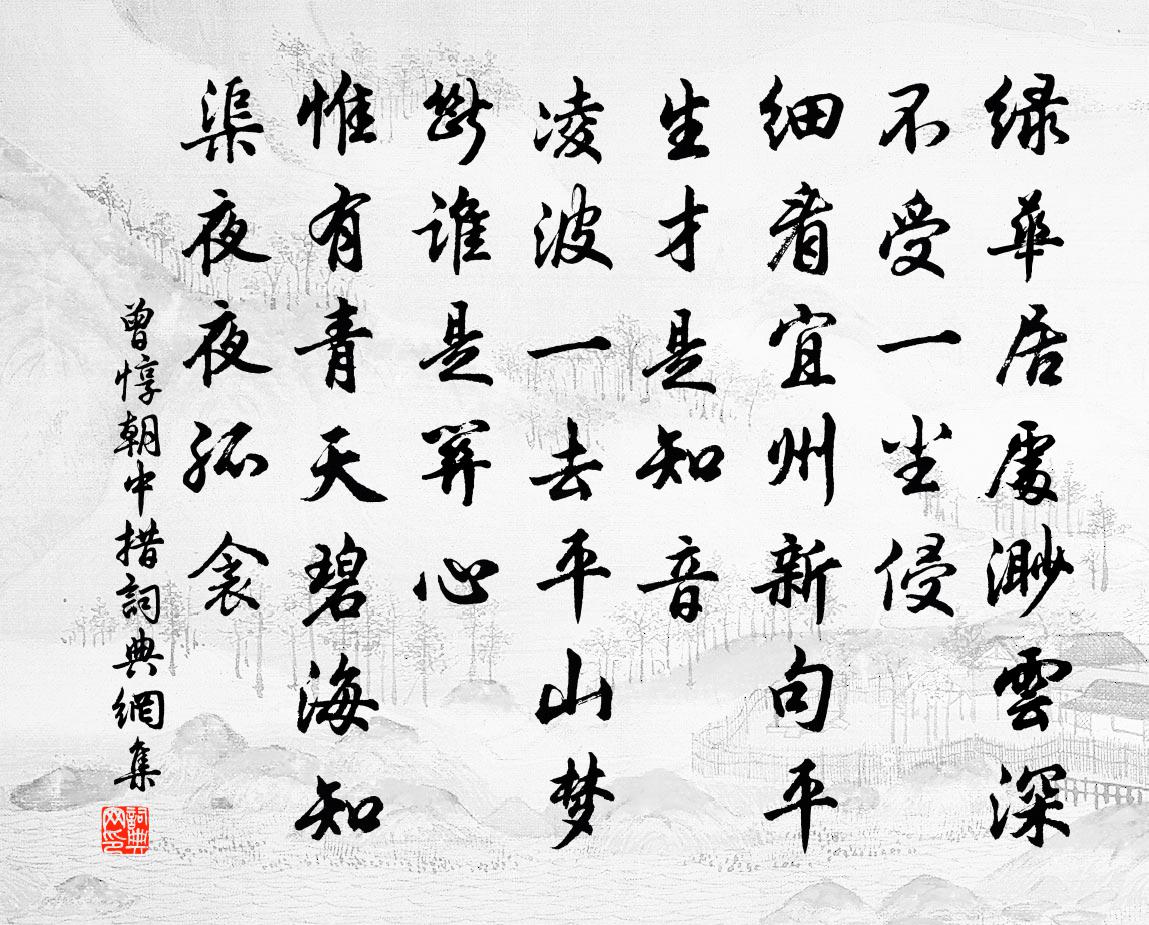 绿華居處渺雲深
不受一尘侵
细看宜州新句平
生才是知音
凌波一去平山梦
斷谁是关心
惟有青天碧海知
渠夜夜孤衾
曾惇朝中措詞典網集
詞典网印